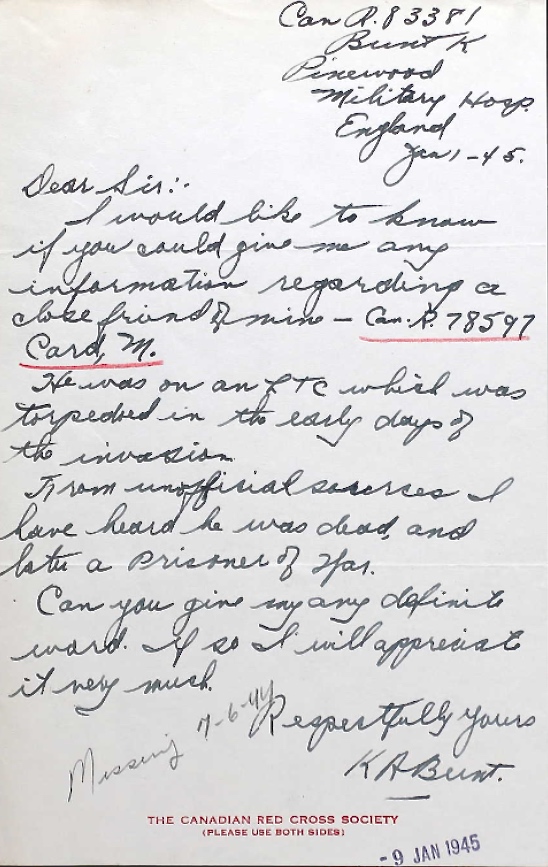 Can R.83381
Bunt K
Pinewood
Military Hosp.
England
Jan 1-45.
Dear Sir:-
I would like to know
if you could give me any
information regarding a
close friend of mine - Can. R. 78597
Card, M.
He was on an LTC which was
torpedoed in the early days of
the invasion.
From unofficial sources I
have heard he was dead, and
later a Prisoner of War.
Can you give my any definite
word. If so I will appreciate
it very much.
Respectfully yours
K A Bunt.
Missing 7-6-44
THE CANADIAN RED CROSS SOCIETY
(PLEASE USE BOTH SIDES)
-9 JAN 1945